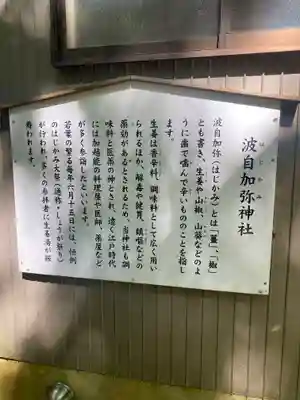 波自加弥神社
はじかみ
波自加弥(はじかみ)とは「薑」「椒」
とも書き、生姜や山椒、山葵などのよ
うに歯で噛んで辛いもののことを指し
ます。
生姜は香辛料、調味料として広く用い
られるほか、解毒や健胃、鎮嘔などの
薬効があるとされるため、当神社も調
味料と医薬の神とされ、遠く江戸時代
には加越能の料理屋や医師、薬屋など
が多く参詣したといいます。
若葉の繁る毎年六月十五日には、恒例
のはじかみ大祭(通称・しょうが祭り)
が行われ、多くの参拝者に生姜湯が振
舞われます。